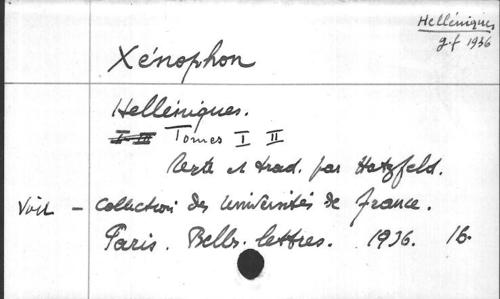 Helléniques
g.f 1936
Xénophon
Helléniques.
Tomes I II
texte et trad. par Hatzfeld.
Voir - Collection des Universités de France.
Paris. Belles lettres. 1936. 16.